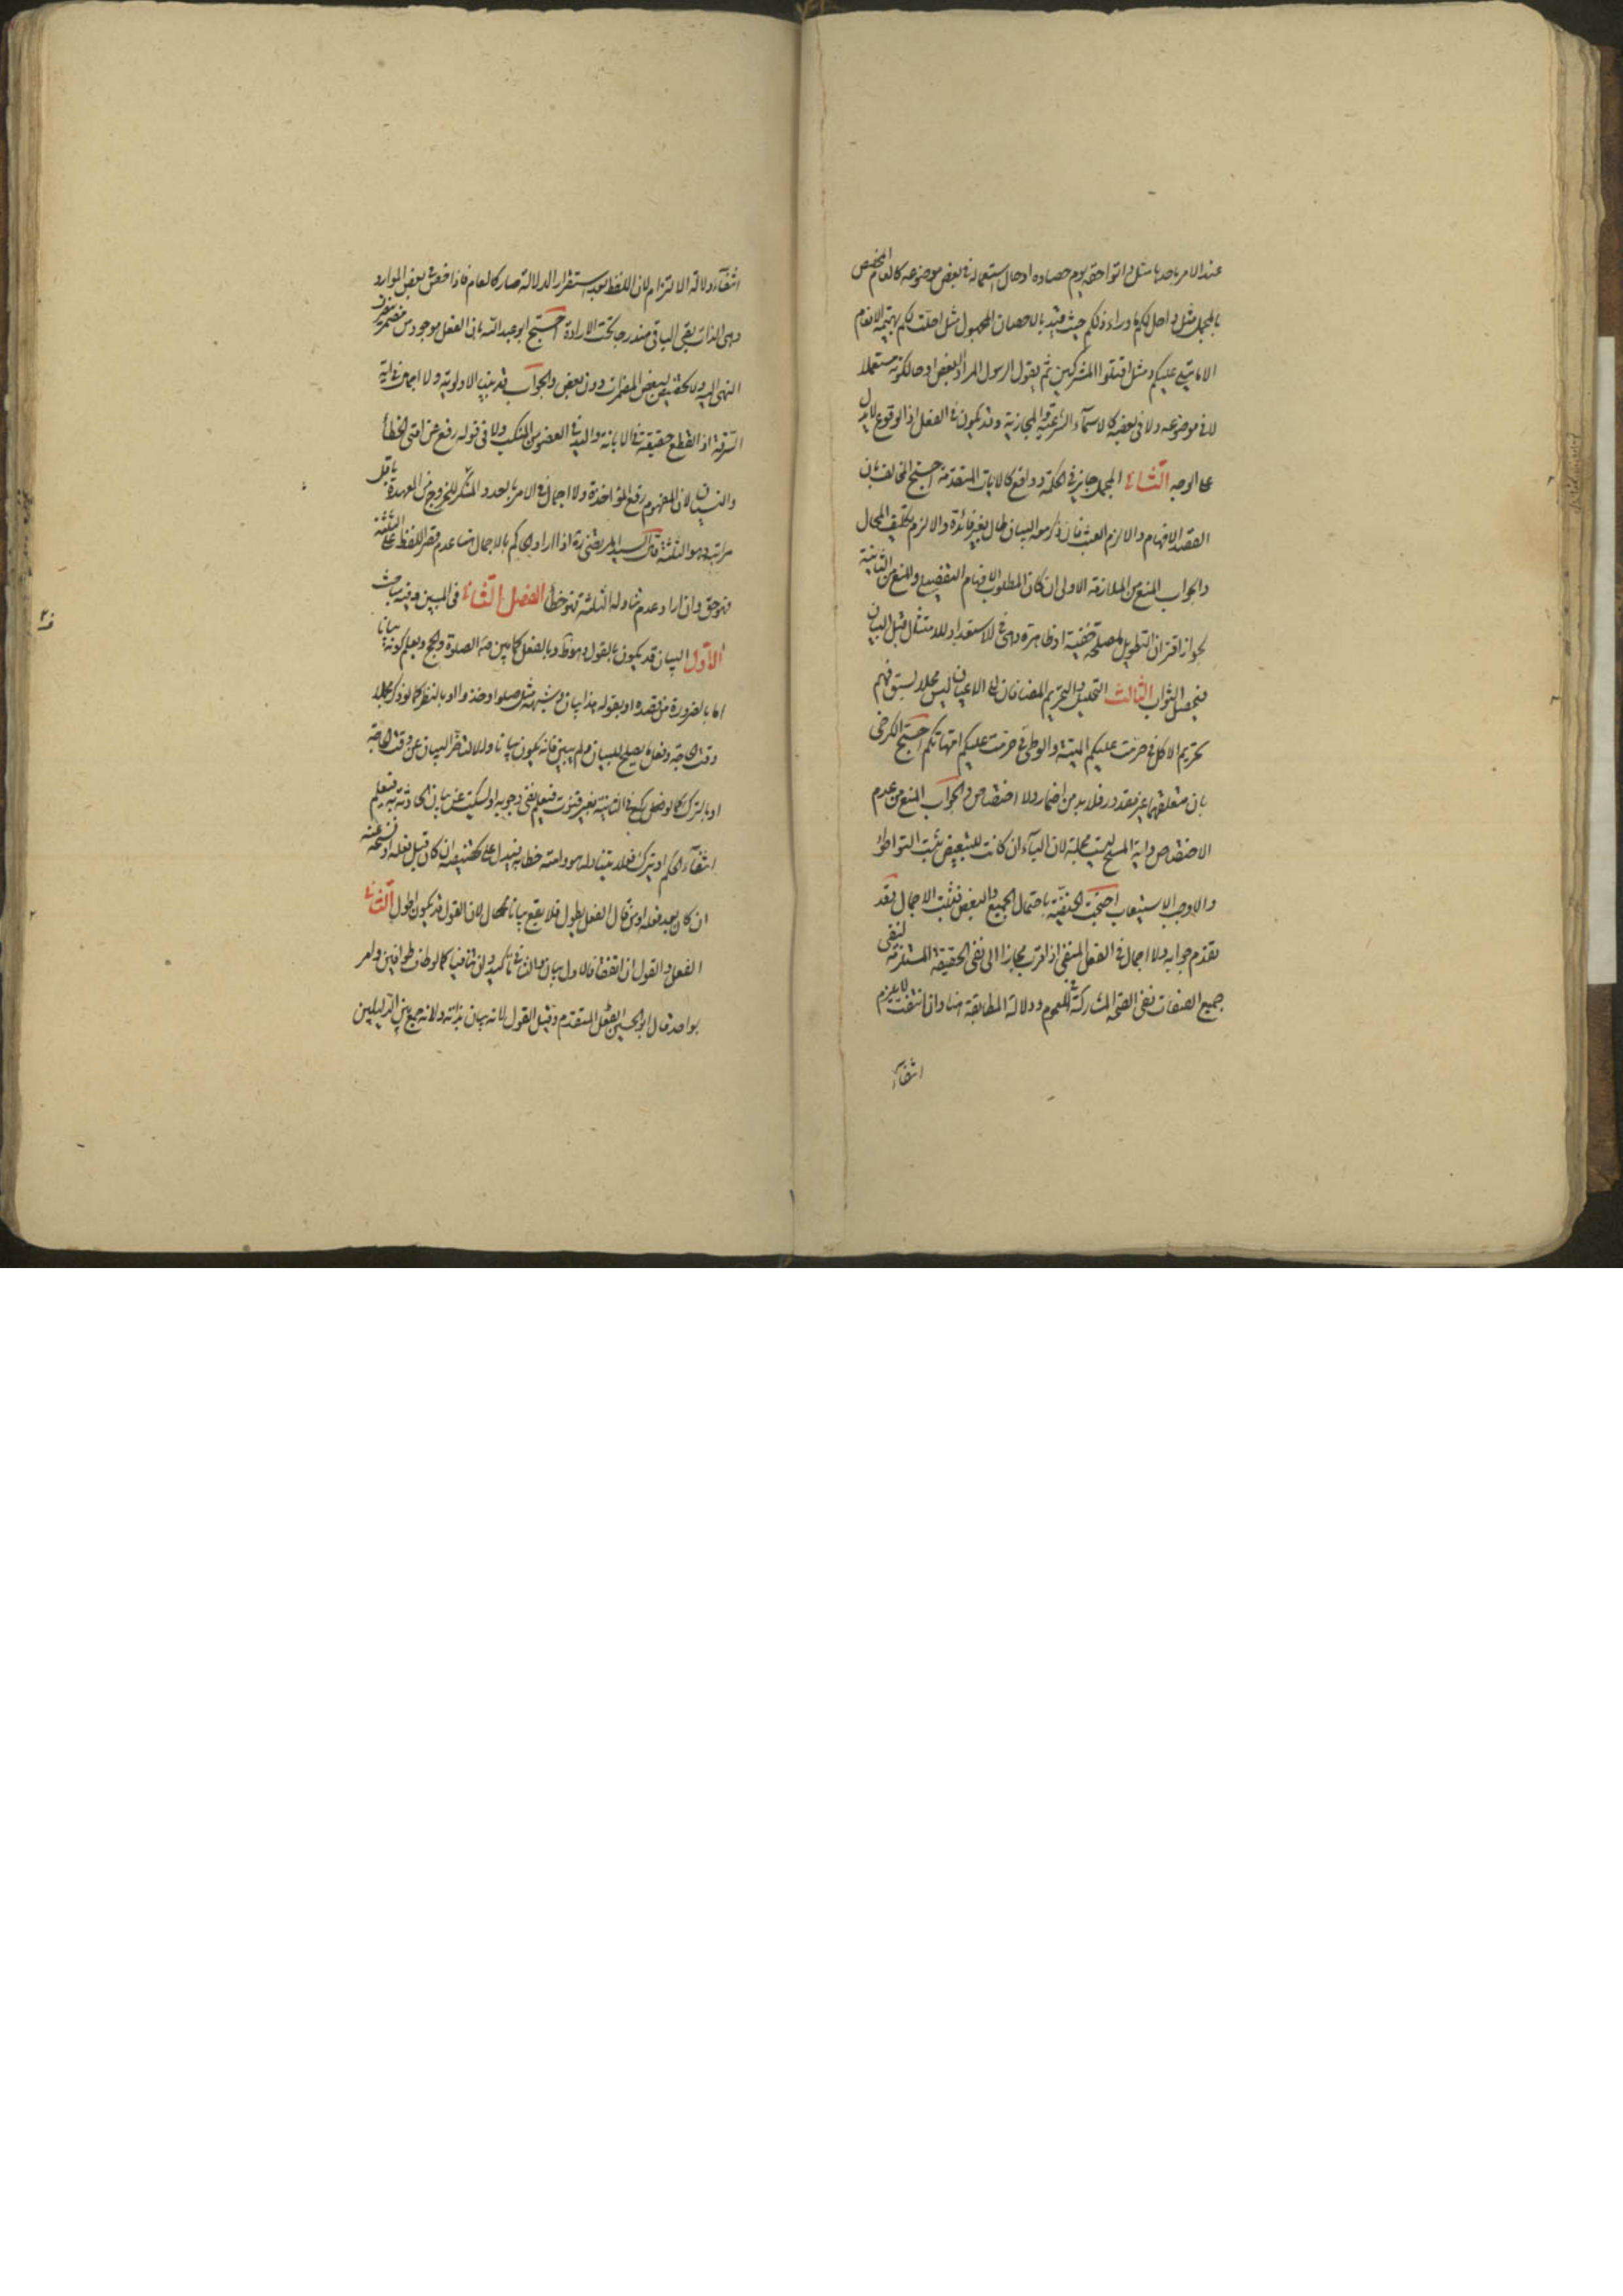 عند الامر باحدها مثل واتوا حقه يوم حصاده او حال استعماله فى بعض موضوعه كالعام المخصص
بالمجمل مثل واحل لكم ما وراء ذلكم حيث قيد بالاحصان المجهول مثل احلت لكم بهيمة الانعام
الا ما يتلى عليكم ومثل اقتلوا المشركين ثم يقول الرسول المراد البعض او حال كونه مستعملا
لا فى موضوعه ولا فى بعضه كالاسماء الشرعية والمجازية وقد يكون فى الفعل اذ الوقوع لا يدل
على الوجه الثانى المجمل جايز فى الحكمة وواقع كالايات المتقدمة احتج المخالف بان
القصد الافهام والا لزم العبث فان ذكر معه البيان طال بغير فائدة والا لزم تكليف المحال
والجواب المنع من الملازمة الاولى ان كان المطلوب الافهام التفصيلى والمنع من الثانية
لجواز اقتران التطويل لمصلحة خفية او ظاهرة وهى الاستعداد للامتثال قبل البيان
فيحصل الثواب الثالث التحليل والتحريم المضافان الى الاعيان ليس مجملا لسبق فهم
تحريم الاكل فى حرمت عليكم الميتة والوطى فى حرمت عليكم امهاتكم احتج الكرخى
بان متعلقهما غير مقدور فلا بد من اضمار ولا اختصاص والجواب المنع من عدم
الاختصاص واية المسح ليست مجملة لان الباء ان كانت للتبعيض ثبت التواطؤ
والا وجب الاستيعاب احتجت الحنفية باحتمال الجميع والبعض فثبت الاجمال وقد
تقدم جوابه ولا اجمال فى الفعل المنفى اذ اقرب مجازا الى نفى الحقيقة المستلزمة لنفى
جميع الصفات نفى الصحة المشاركة فى العموم ودلالة المطابقة هنا وان انتفت لا يلزم
انتفاء
انتفاء دلالة الالتزام لان اللفظ بعد استقرار الدلالة صار كالعام فاذا خص فى بعض الموارد
وهى الذات بقى الباقى مندرجا تحت الارادة احتج ابو عبد الله بان الفعل موجود من مضمر يصرف
النهى اليه ولا تخصيص لبعض المضمرات دون بعض والجواب قد بينا الاولوية ولا اجمال فى اية
السرقة اذ القطع حقيقة فى الابانة واليد فى العضو من المنكب ولا فى قوله رفع عن امتى الخطأ
والنسيان لان المفهوم رفع المؤاخذة ولا اجمال فى الامر بعدد المنكر للخروج من العهدة باقل
مراتبه وهو الثلثة قال السيد المرتضى ره اذا اراد الحاكم بالاجمال هنا عدم قصر اللفظ على الثلثة
فهو حق وان اراد عدم تناوله الثلثة فهو خطأ الفصل الثانى فى المبين وفيه مباحث
الاول البيان قد يكون بالقول وهو ظ وبالفعل كما بين صه الصلوة والحج ويعلم كونه بيانا
اما بالضرورة من قصده او بقوله هذا بيان وشبهه مثل صلوا وخذوا او بالنظر كما لو ذكر مجملا
وقت الحاجة وفعل ما يصلح للبيان ولم يبين فانه يكون بيانا والا لتأخر البيان عن وقت الحاجة
او بالترك كما لو فعل ركع فى الثانية بغير قنوت فيعلم نفى وجوبه او لسكت عن بيان الحادثة فيعلم
انتفاء الحكم او بترك فعلا يتناوله هو وامته خطابه فيدل على تخصيصه ان كان قبل فعله او نسخه عنه
ان كان بعد فعله قال الفعل يطول فلا يقع بيانا محال لان القول قد يكون اطول الثانى
الفعل والقول ان اتفقا فالاول بيان والثانى تاكيد وان تنافيا كما لو طاف طوافين وامر
بواحد قال ابو الحسين الفعل المتقدم وقيل القول لانه بيان بذاته ولانه جمع بين الدليلين